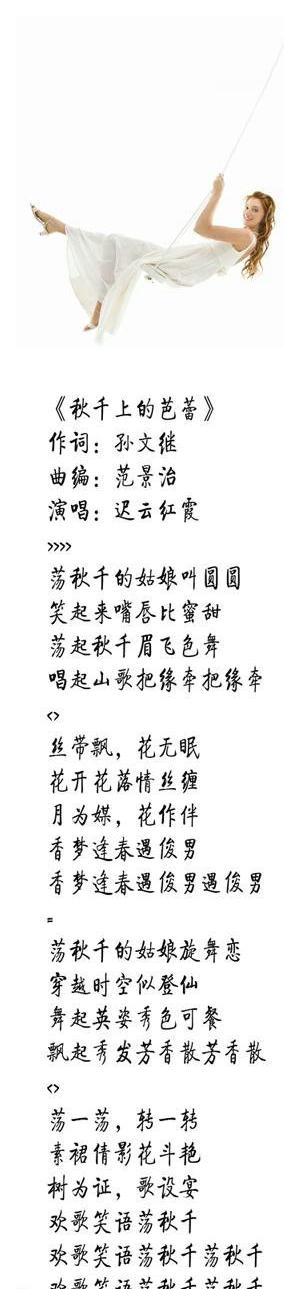 《秋千上的芭蕾》
作词：孙文继
曲编：范景治
演唱：迟云红霞
>>>>
荡秋千的姑娘叫圆圆
笑起来嘴唇比蜜甜
荡起秋千眉飞色舞
唱起山歌把缘牵把缘牵
<>
丝带飘，花无眠
花开花落情丝缠
月为媒，花作伴
香梦逢春遇俊男
香梦逢春遇俊男遇俊男
=
荡秋千的姑娘旋舞恋
穿越时空似登仙
舞起英姿秀色可餐
飘起秀发芳香散芳香散
<>
荡一荡，转一转
素裙倩影花斗艳
树为证，歌设宴
欢歌笑语荡秋千
欢歌笑语荡秋千荡秋千
欢歌笑语荡秋千荡秋千